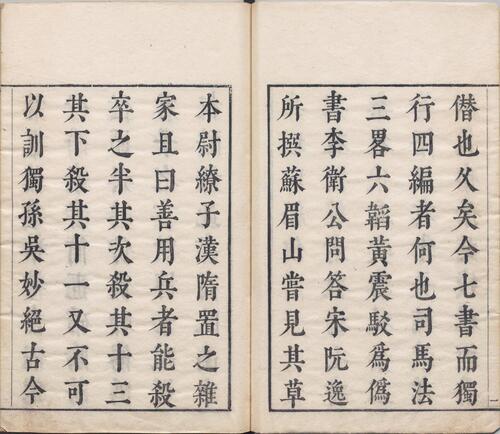 僭也久矣今七書而獨
行四編者何也司馬法
三畧六韜黃震駁爲僞
書李衛公問答宋阮逸
所撰蘇眉山嘗見其草
本尉繚子漢隋置之雜
家且曰善用兵者能殺
卒之半其次殺其十三
其下殺其十一又不可
以訓獨孫吳妙絕古今
一